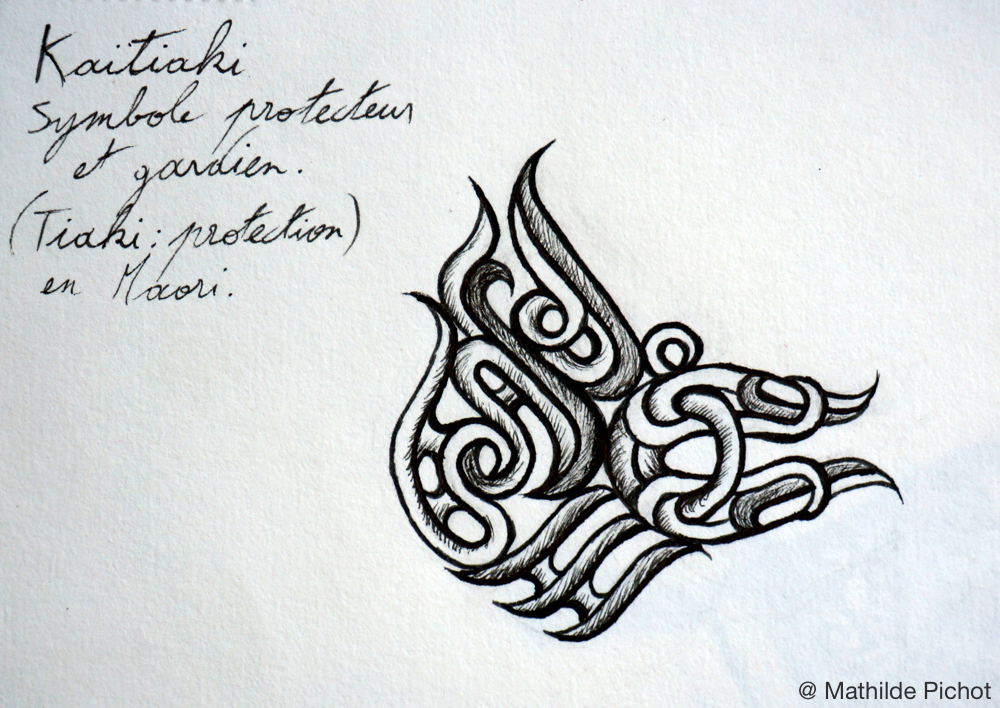 Kaitiaki
Symbole protecteur
et gardien.
(Tiaki : protection)
en Maori.
@ Mathilde Pichot